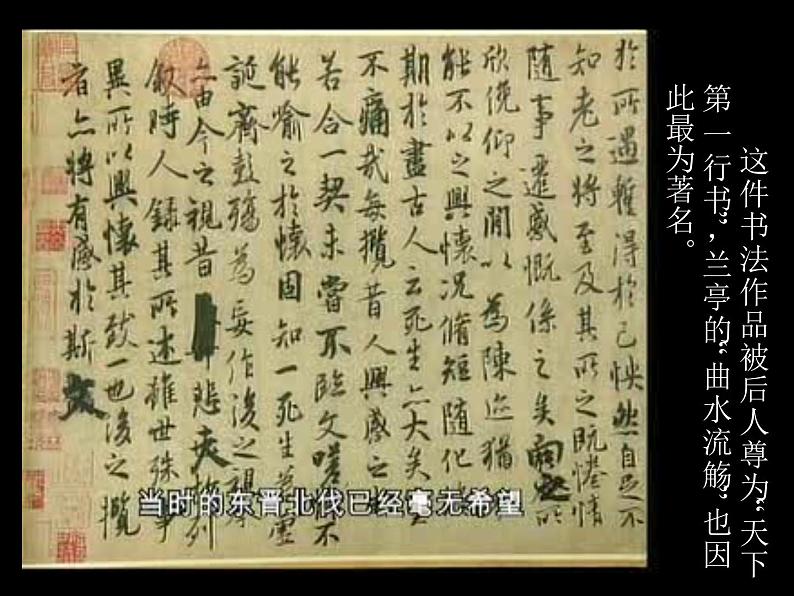 於所遇暫得於己怏然自足不
知老之將至及其所之既惓情
隨事遷感慨係之矣向之所
欣俛仰之閒以為陳迹猶
能不以之興懷況脩短隨化
期於盡古人云死生亦大矣
不痛哉每攬昔人興感之
若合一契未嘗不臨文嗟
能喻之於懷固知一死生
誕齊彭殤為妄作後之視
亦由今之視昔悲夫故列
敘時人錄其所述雖世殊事
異所以興懷其致一也後之攬
者亦將有感於斯文
当时的东晋北伐已经毫无希望
这件书法作品被后人尊为“天下
第一行书”，兰亭的“曲水流觞”也因
此最为著名。